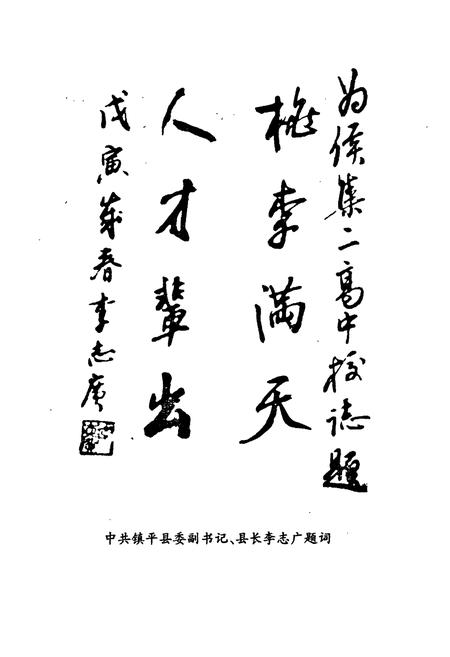 为侯集二高中校志题
桃李满天
人才輩出
戊寅年春李志廣
中共镇平县委副书记、县长李志广题词